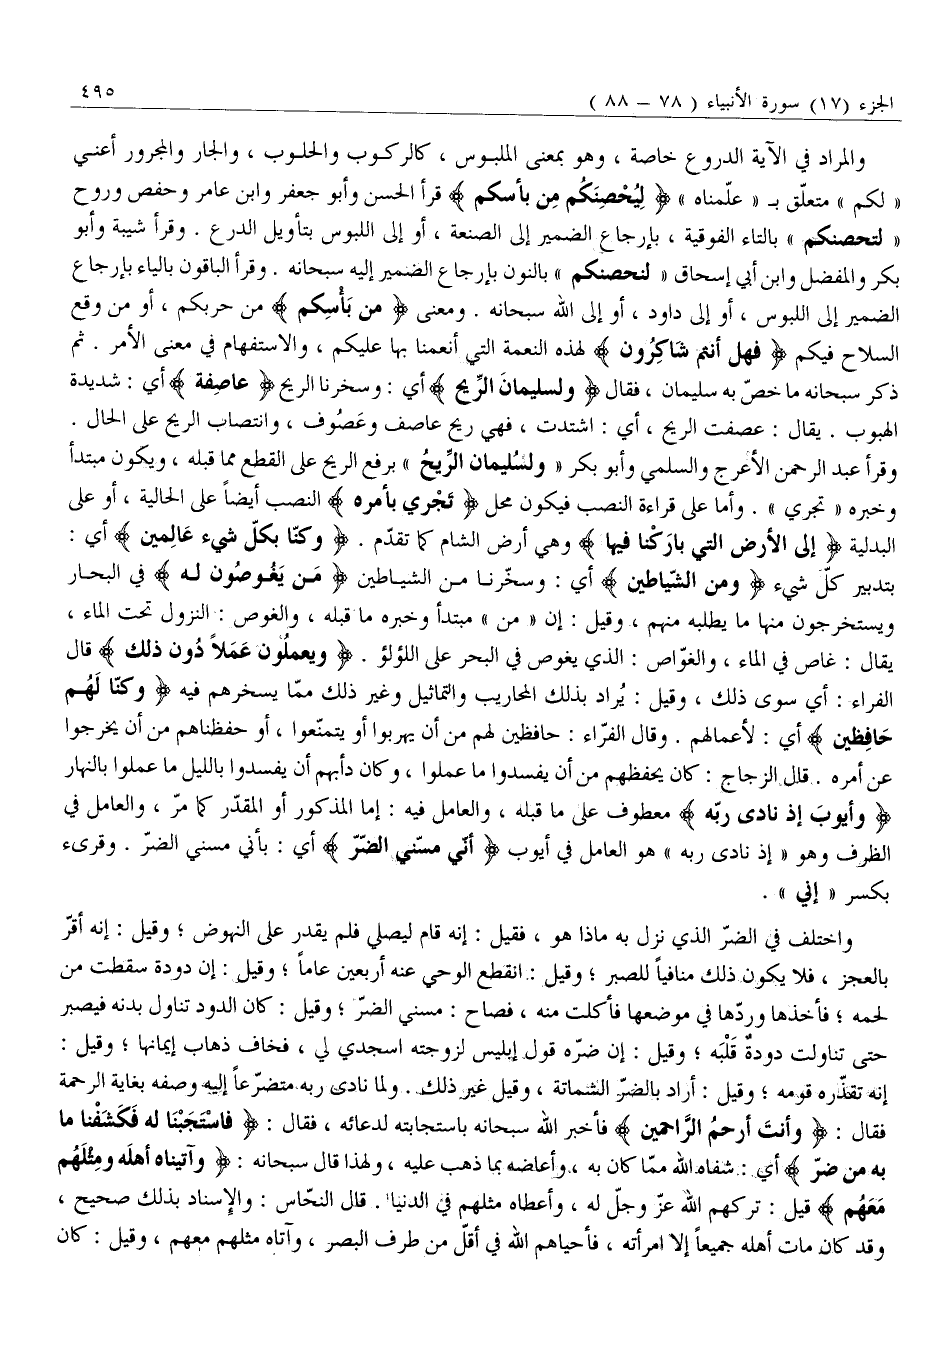 الجزء (١٧) سورة الأنبياء ( ٧٨ - ٨٨ ) ٤٩٥
والمراد في الآية الدروع خاصة ، وهو بمعنى الملبوس ، كالركوب والحلوب ، والجار والمجرور أعني
« لكم » متعلّق بـ « علّمناه » ﴿ لِيُحْصِنَكُم مِن بأسكم ﴾ قرأ الحسن وأبو جعفر وابن عامر وحفص وروح
« لتحصنكم » بالتاء الفوقية ، بإرجاع الضمير إلى الصنعة ، أو إلى اللبوس بتأويل الدرع . وقرأ شيبة وأبو
بكر والمفضل وابن أبي إسحاق « لنحصنكم » بالنون بإرجاع الضمير إليه سبحانه . وقرأ الباقون بالياء بإرجاع
الضمير إلى اللبوس ، أو إلى داود ، أو إلى الله سبحانه . ومعنى ﴿ من بَأْسِكم ﴾ من حربكم ، أو من وقع
السلاح فيكم ﴿ فهل أنتم شَاكِرُون ﴾ لهذه النعمة التي أنعمنا بها عليكم ، والاستفهام في معنى الأمر . ثم
ذكر سبحانه ما خصّ به سليمان ، فقال ﴿ ولسليمانَ الرِّيح ﴾ أي : وسخرنا الريح ﴿ عاصِفة ﴾ أي : شديدة
الهبوب . يقال : عصفت الريح ، أي : اشتدت ، فهي ريح عاصف وعَصُوف ، وانتصاب الريح على الحال .
وقرأ عبد الرحمن الأعرج والسلمي وأبو بكر « ولسُليمان الرِّيحُ » برفع الريح على القطع مما قبله ، ويكون مبتدأ
وخبره « تجري » . وأما على قراءة النصب فيكون محل ﴿ تَجْري بأمره ﴾ النصب أيضاً على الحالية ، أو على
البدلية ﴿ إلى الأرض التي بارَكْنا فيها ﴾ وهي أرض الشام كما تقدّم . ﴿ وكنّا بكلّ شيء عَالِمين ﴾ أي :
بتدبير كلّ شيء ﴿ ومن الشّياطين ﴾ أي : وسخّرنا من الشياطين ﴿ مَن يَغُوصُون له ﴾ في البحار
ويستخرجون منها ما يطلبه منهم ، وقيل : إن « من » مبتدأ وخبره ما قبله ، والغوص : النزول تحت الماء ،
يقال : غاص في الماء ، والغوّاص : الذي يغوص في البحر على اللؤلؤ . ﴿ ويعملُون عَمَلاً دُون ذلك ﴾ قال
الفراء : أي سوى ذلك ، وقيل : يُراد بذلك المحاريب والتماثيل وغير ذلك ممّا يسخرهم فيه ﴿ وكنّا لَهُم
حَافظين ﴾ أي : لأعمالهم . وقال الفرّاء : حافظين لهم من أن يهربوا أو يتمنّعوا ، أو حفظناهم من أن يخرجوا
عن أمره . قال الزجاج : كان يحفظهم من أن يفسدوا ما عملوا ، وكان دأبهم أن يفسدوا بالليل ما عملوا بالنهار
﴿ وأيوبَ إذ نادى ربّه ﴾ معطوف على ما قبله ، والعامل فيه : إما المذكور أو المقدّر كما مرّ ، والعامل في
الظرف وهو « إذ نادى ربه » هو العامل في أيوب ﴿ أنّي مسّني الضرّ ﴾ أي : بأني مسني الضرّ . وقرىء
بكسر « إني » .
واختلف في الضرّ الذي نزل به ماذا هو ، فقيل : إنه قام ليصلي فلم يقدر على النهوض ؛ وقيل : إنه أقرّ
بالعجز ، فلا يكون ذلك منافياً للصبر ؛ وقيل : انقطع الوحي عنه أربعين عاماً ؛ وقيل : إن دودة سقطت من
لحمه ؛ فأخذها وردّها في موضعها فأكلت منه ، فصاح : مسني الضرّ ؛ وقيل : كان الدود تناول بدنه فيصبر
حتى تناولت دودةٌ قَلْبَه ؛ وقيل : إن ضرّه قول إبليس لزوجته اسجدي لي ، فخاف ذهاب إيمانها ؛ وقيل :
إنه تقذّره قومه ؛ وقيل : أراد بالضرّ الشماتة ، وقيل غير ذلك . ولما نادى ربه متضرّعاً إليه وصفه بغاية الرحمة
فقال : ﴿ وأنتَ أرحمُ الرَّاحمين ﴾ فأخبر الله سبحانه باستجابته لدعائه ، فقال : ﴿ فاسْتَجَبْنَا له فَكَشَفْنا ما
به من ضرّ ﴾ أي : شفاه الله ممّا كان به ، وأعاضه بما ذهب عليه ، ولهذا قال سبحانه : ﴿ وآتيناه أهلَه ومِثْلَهُم
مَعَهُم ﴾ قيل : تركهم الله عزّ وجلّ له ، وأعطاه مثلهم في الدنيا . قال النحّاس : والإسناد بذلك صحيح ،
وقد كان مات أهله جميعاً إلا امرأته ، فأحياهم الله في أقلّ من طرف البصر ، وآتاه مثلهم معهم ، وقيل : كان